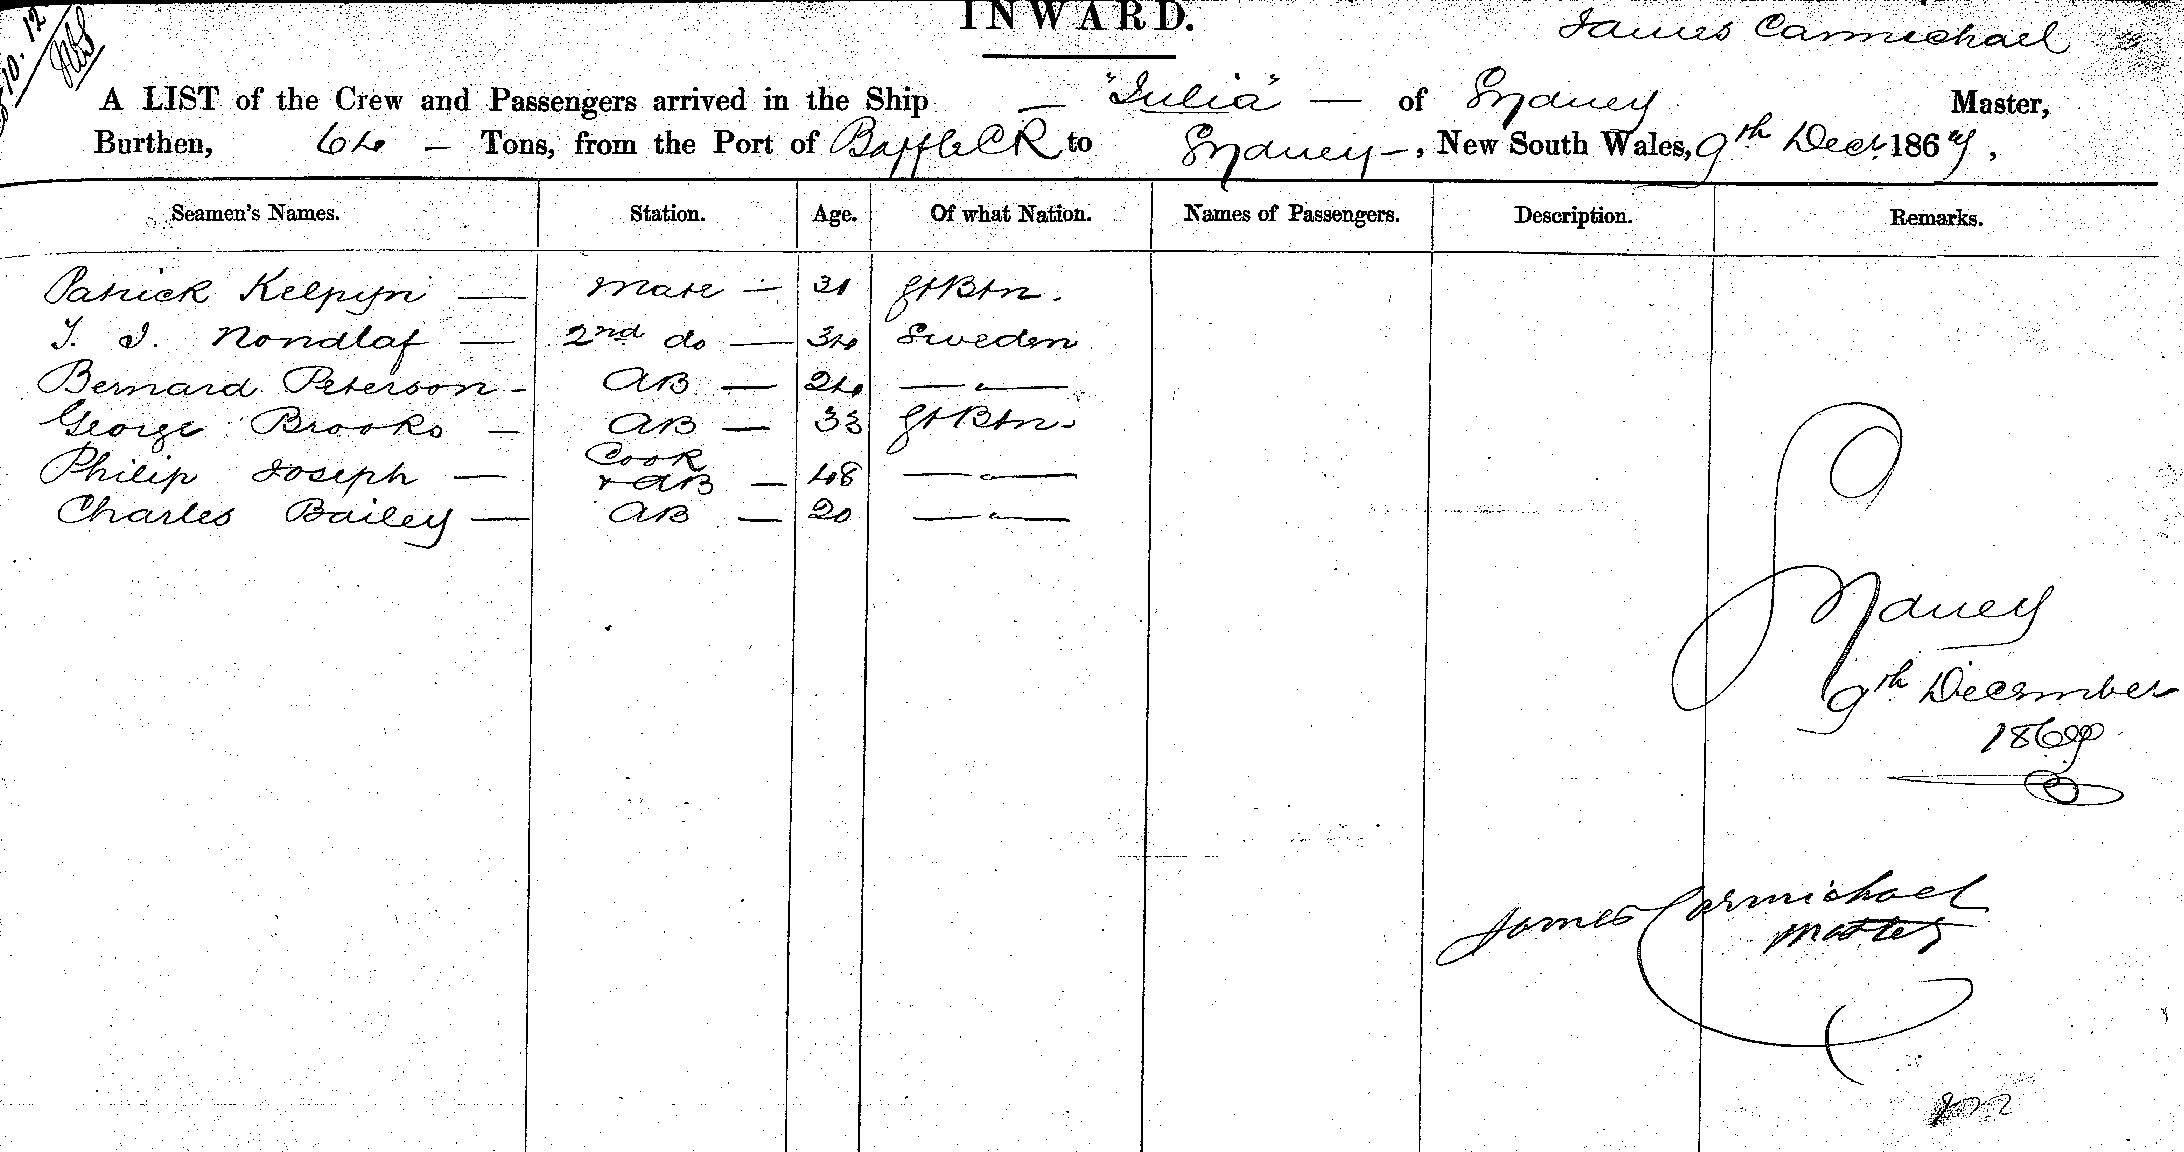 10. 12
INWARD.
James Carmichael
A LIST of the Crew and Passengers arrived in the Ship — "Julia" — of Sydney Master,
Burthen, 64 — Tons, from the Port of Baffle CR to Sydney —, New South Wales, 9th Decr. 1869,
Seamen's Names. Station. Age. Of what Nation. Names of Passengers. Description. Remarks.
Patrick — Mate — 31 Gt Btn.
2nd do — 34 Sweden
Bernard Peterson - AB — 24 — " —
George Brooks — AB — 33 Gt Btn.
Philip Joseph — Cook + AB — 48 — " —
Charles Bailey — AB — 20 — " —
Sydney
9th December
1869
James Carmichael
Master